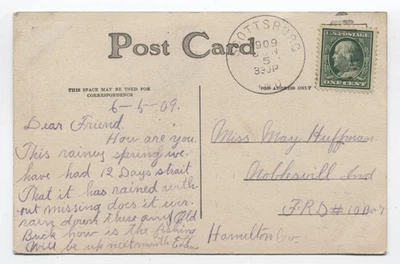 Post Card
THIS SPACE MAY BE USED FOR
CORRESPONDENCE
FOR ADDRESS ONLY
SCOTTSBURG
1909
5
330P
IND.
ONE CENT
6-5-09.
Dear Friend.
How are you.
This rainey spring we
have had 12 Days strait
That it has rained with
out missing does it ever
rain down there any Old
Buck how is the fishing
Will be up next month
Miss. May Huffman
Noblesvill Ind
F.R.D # 10
Hamilton Co.